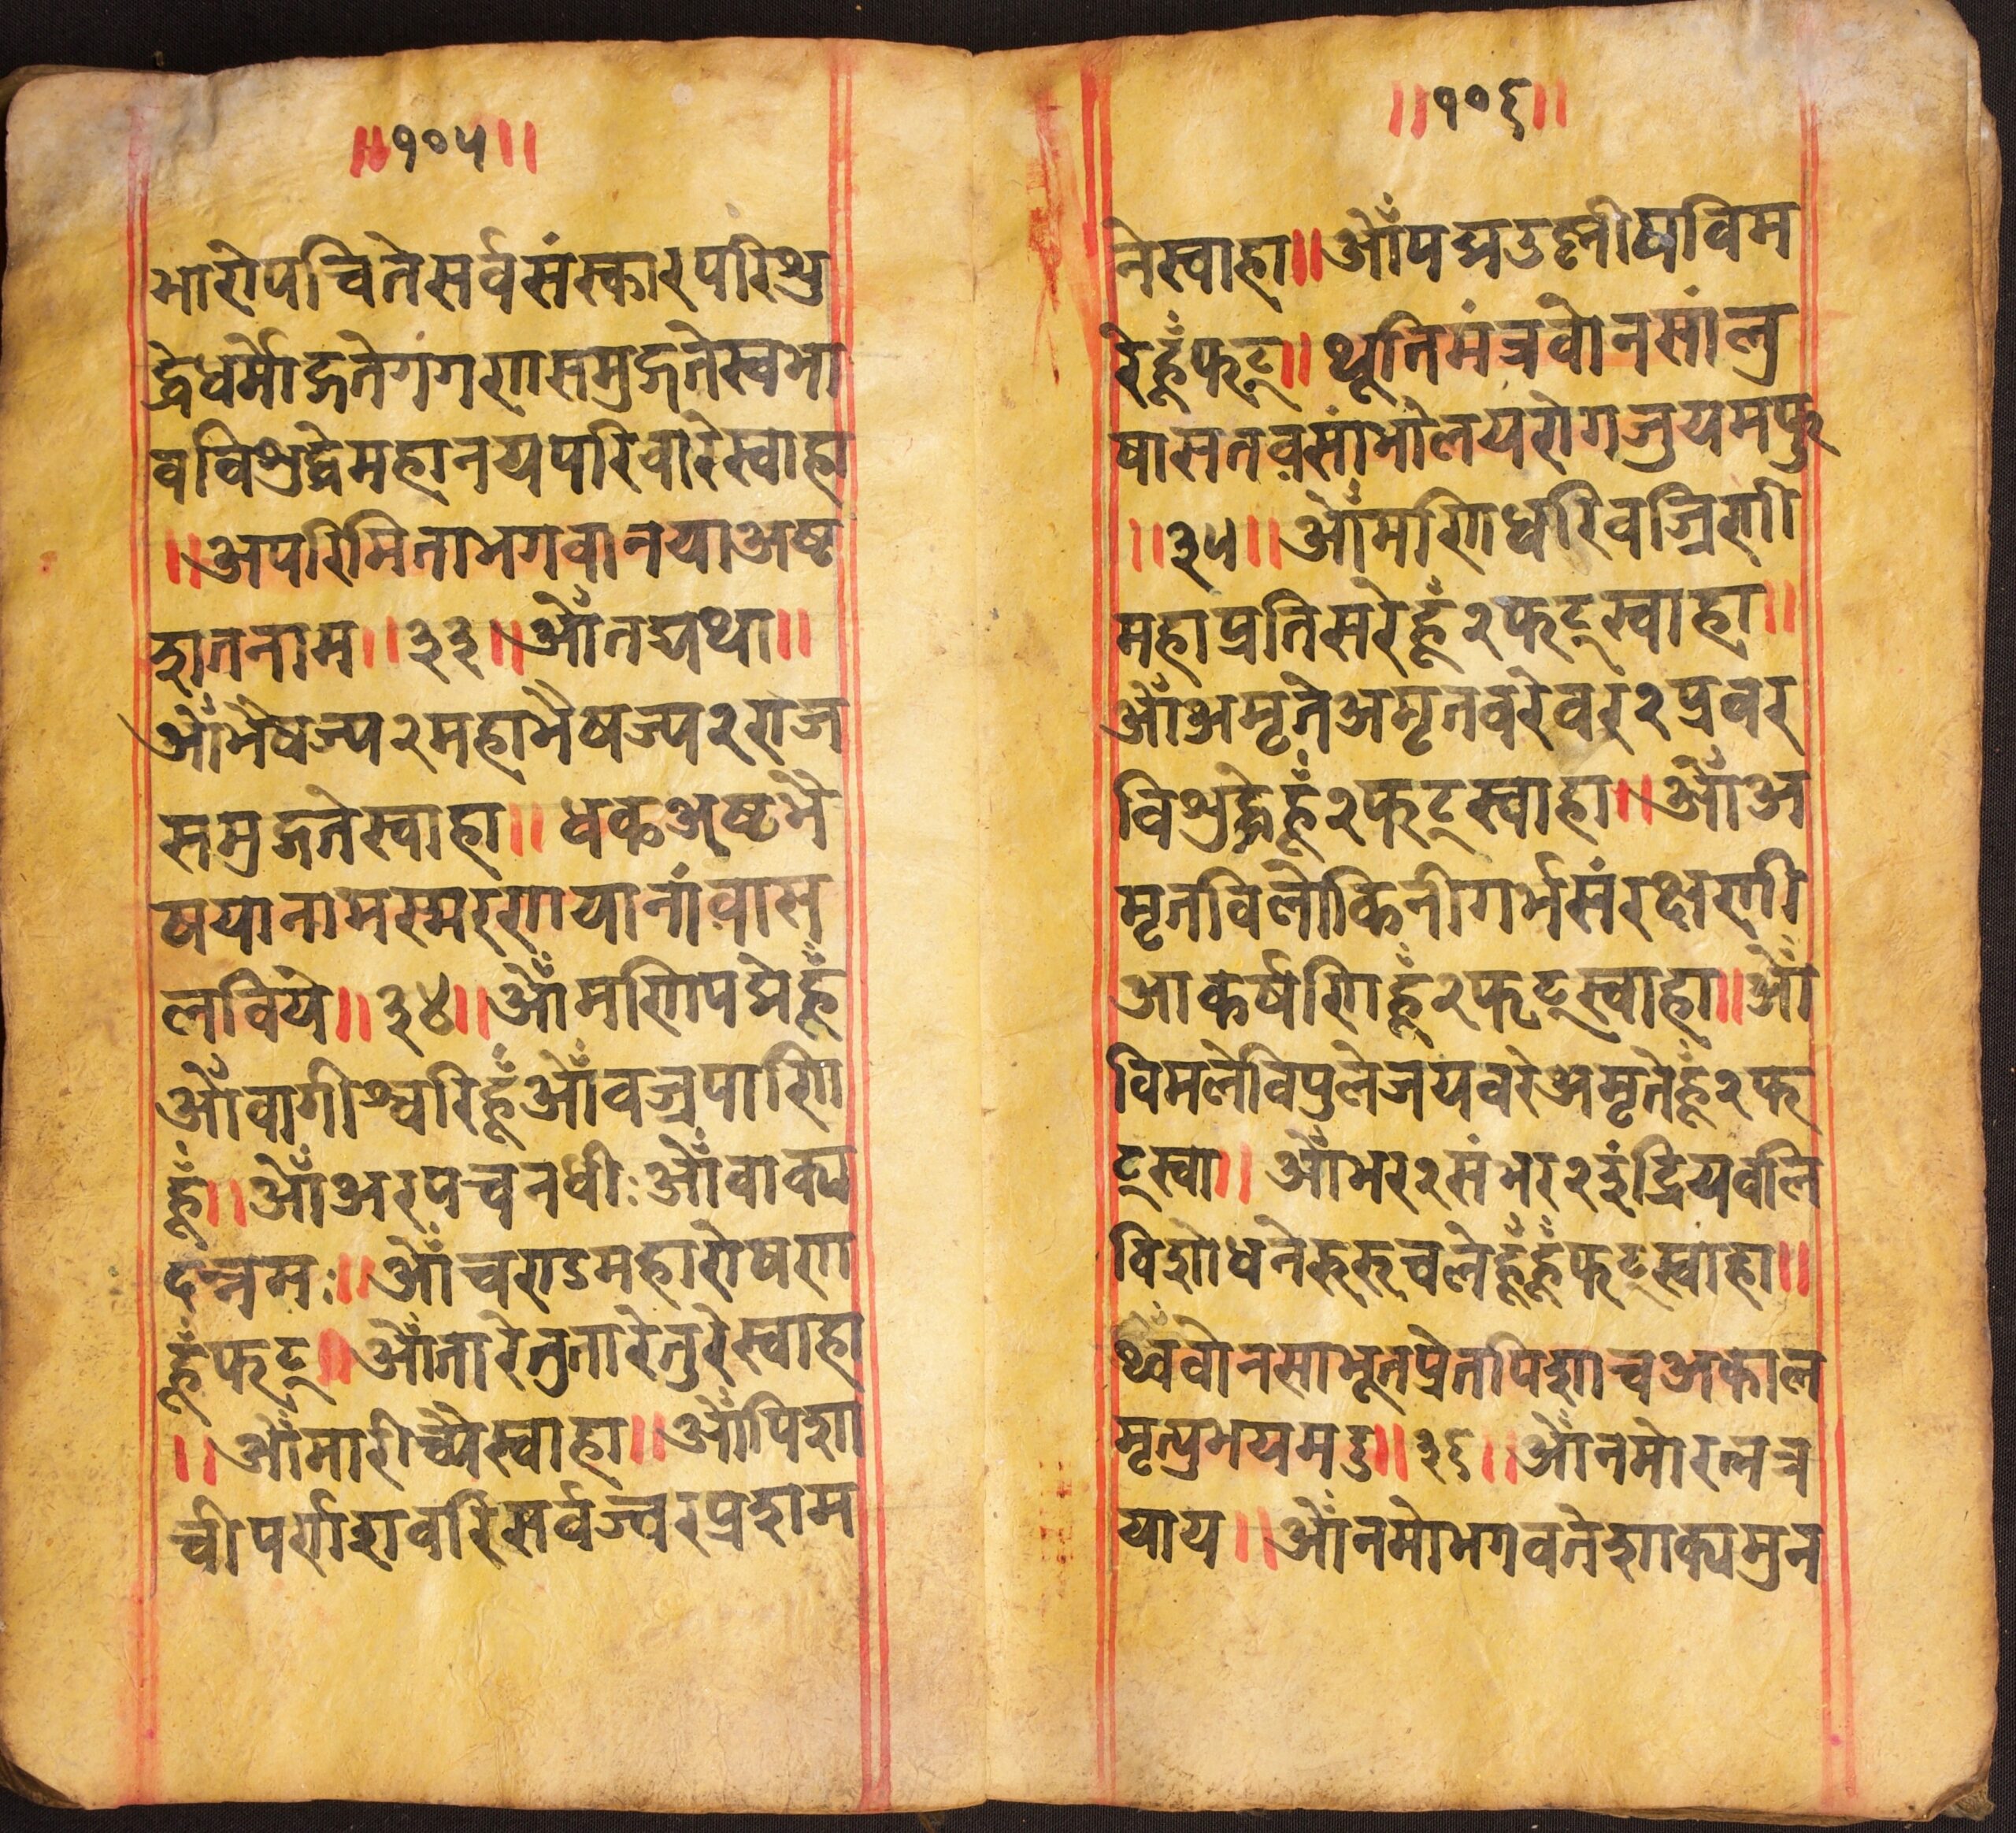 ॥१०५॥
भारोपचितेसर्वसंस्कारपरिशु
द्धेधर्मोद्गतेगगणसमुद्गतेस्वभा
वविशुद्धेमहानयपरिवारेस्वाहा
॥अपरिमिताभगवानयाअष्ट
शतनाम॥३३॥ओँतद्यथा॥
ओँभैषज्य२महाभैषज्य२राज
समुद्गतेस्वाहा॥धकअष्टभै
षयानामस्मरणयानांवास
लविये॥३४॥ओँमणिपद्मेहूँ
ओँवागीश्वरिहूँओँवज्रपाणि
हूँ॥ओँअरपचनधीःओँवाक्य
दंन्नमः॥ओँचण्डमहारोषण
हूँफट्॥ओँतारेतुतारेतुरेस्वाहा
॥ओँमारीच्यैस्वाहा॥ओँपिशा
चीपर्णशवरिसर्वज्वरप्रशम
॥१०६॥
नेस्वाहा॥ओँपद्मउष्णीषविम
रेहूँफट्॥थूतिमंत्रवोनसांल्व
षासतवसांभालयरोगजुयमफु
॥३५॥ओँमणिधरिवज्रिणी
महाप्रतिसरेहूँ२फट्स्वाहा॥
ओँअमृतेअमृतवरेवर२प्रवर
विशुद्धेहूँ२फट्स्वाहा॥ओँअ
मृतविलोकिनीगर्भसंरक्षणी
आकर्षणिहूँ२फट्स्वाहा॥ओँ
विमलेविपुलेजयवरेअमृतेहूँ२फ
ट्स्वा॥ओँभर२संभर२इंद्रियवलि
विशोधनेरुरुचलेहूँहूँफट्स्वाहा॥
थ्वँवोनसाभूतप्रेतपिशाचअकाल
मृत्युभयमदु॥३६॥ओँनमोरत्नत्र
याय॥ओँनमोभगवतेशाक्यमुन